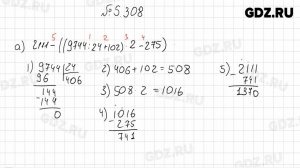 GDZ.RU
№5.308
5 1 2 3 4
а) 2111-((9744:24+102)·2-275)
1) 9744 | 24 2) 406+102=508 5) -2111
96 406 741
144 3) 508·2=1016 1370
-144
0 4) -1016
275
741
GDZ.RU